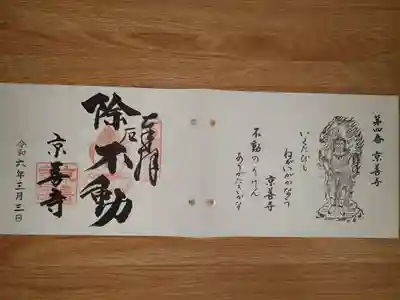 第四番 京善寺
いくたびも
ねがいがかなう
京善寺
不動のりけん
奉拝
不動
京善寺
令和六年三月三日